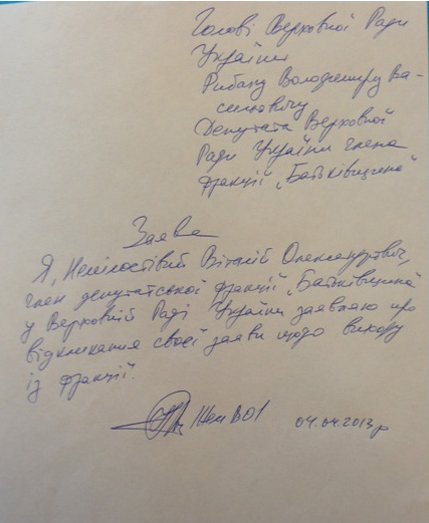 Голові Верховної Ради
України
Рибаку Володимиру Ва-
сильовичу
Депутата Верховної
Ради України члена
фракції „Батьківщина"
Заява
Я, Немілостівий Віталій Олександрович,
член депутатської фракції „Батьківщина"
у Верховній Раді України заявляю про
відкликання своєї заяви щодо виходу
із фракції.
04.04.2013р